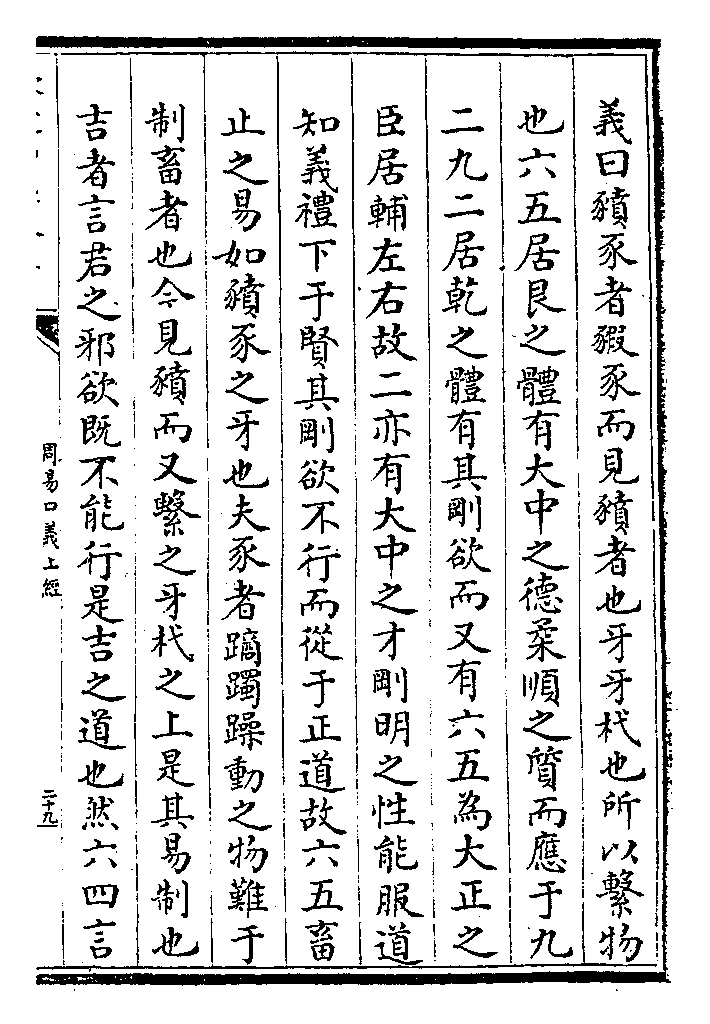 義曰豶豕者豭豕而見豶者也牙牙杙也所以繫物
也六五居艮之體有大中之德柔順之質而應于九
二九二居乾之體有其剛欲而又有六五為大正之
臣居輔左右故二亦有大中之才剛明之性能服道
知義禮下于賢其剛欲不行而從于正道故六五畜
止之易如豶豕之牙也夫豕者蹢躅躁動之物難于
制畜者也今見豶而又繫之牙杙之上是其易制也
吉者言君之邪欲既不能行是吉之道也然六四言
周易口義上經
二十九